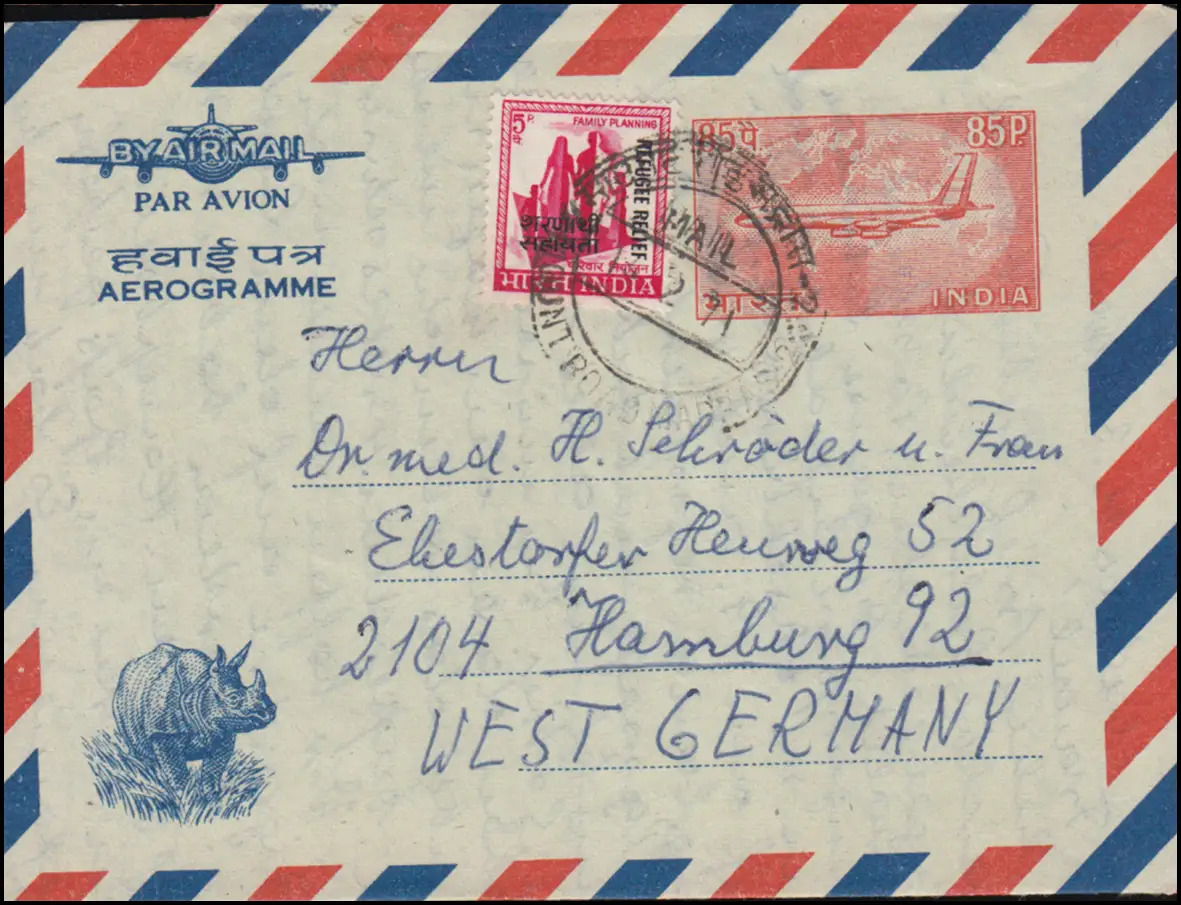 BY AIR MAIL
PAR AVION
हवाई पत्र
AEROGRAMME
5 P.
पै.
FAMILY PLANNING
REFUGEE RELIEF
शरणार्थी
सहायता
परिवार नियोजन
भारत INDIA
85पै
85P.
भारत
INDIA
2 71
Herrn
Dr. med. H. Schröder u. Frau
Ehestorfer Heuweg 52
2104 Hamburg 92
WEST GERMANY